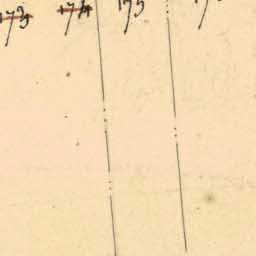 173 174 175